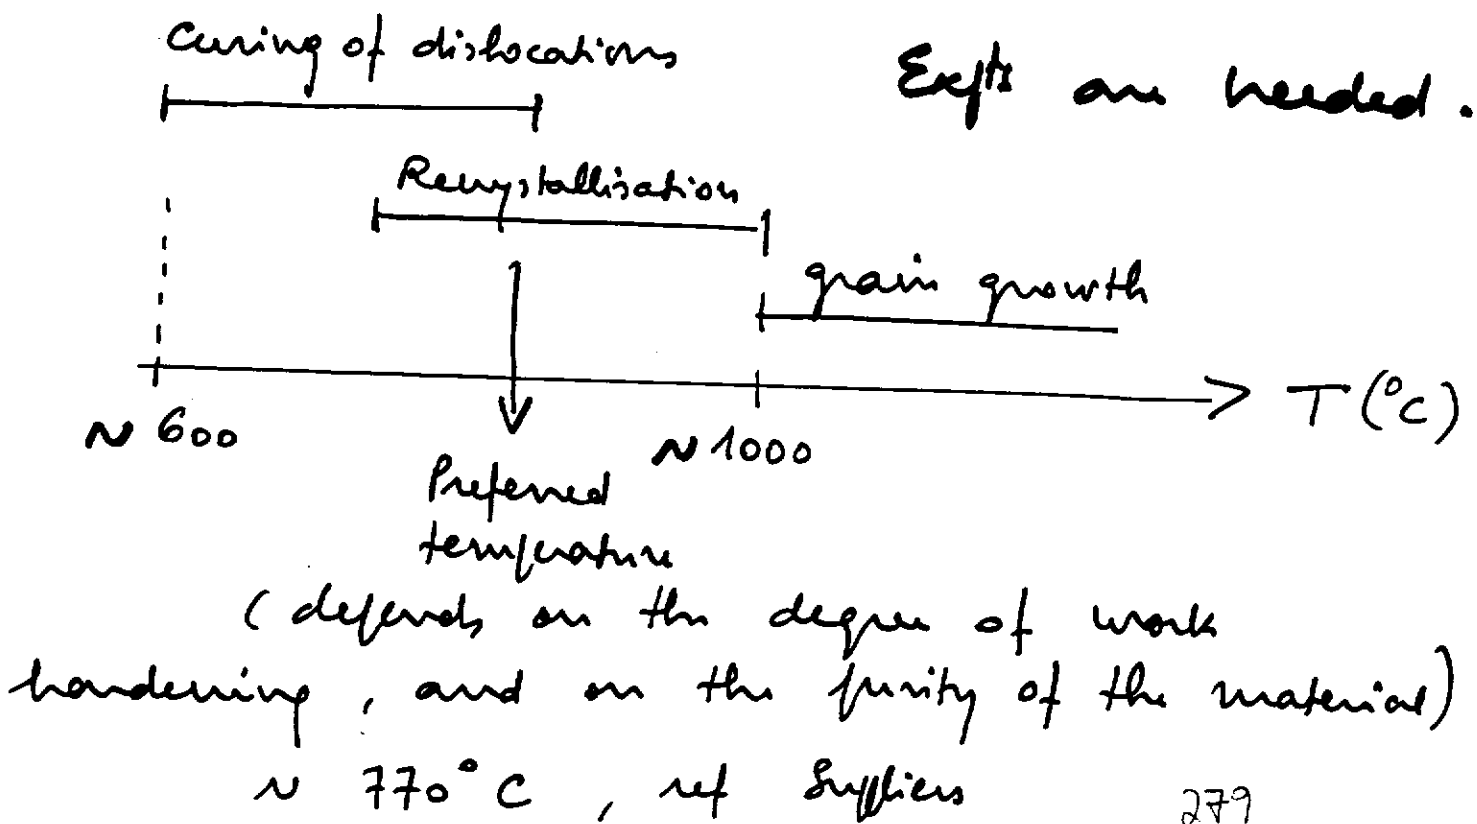 Curing of dislocations
Expts are needed.
Recrystallisation
grain growth
T (°C)
~ 600
~ 1000
Preferred
temperature
( depends on the degree of work
hardening, and on the purity of the material)
~ 770°C , ref Suppliers
279